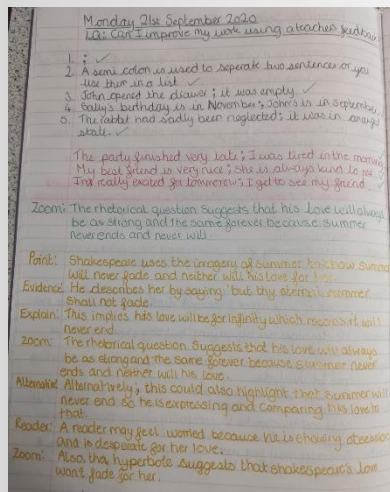 Monday 21st September 2020
LQ: Can I improve my work using a teachers feedback
1. ; ✓
2. A semi colon is used to seperate two sentences or you
use them in a list ✓
3. John opened the drawer ; it was empty. ✓
4. Sally's birthday is in November ; John's is in September
5. The rabbit had sadly been neglected ; it was in an
state. ✓
The party finished very late ; I was tired in the morning
My best friend is very nice ; she is always kind to me
I'm really excited for tomorrow's ; I get to see my friend
Zoom: The rhetorical question suggests that his love will always
be as strong and the same forever because summer
never ends and never will.
Point: Shakespeare uses the imagery of summer to show summer
will never fade and neither will his love for her.
Evidence: He describes her by saying 'but thy eternal summer
shall not fade.
Explain: This implies his love will be for infinity which means it will
never end.
Zoom: The rhetorical question suggests that his love will always
be as strong and the same forever because summer never
ends and neither will his love.
Alternative Alternatively, this could also highlight that summer will
never end so he is expressing and comparing his love to
that.
Reader: A reader may feel worried because he is showing obsession
and is desperate for her love.
Zoom: Also, the hyperbole suggests that shakespeare's love
wont fade for her.